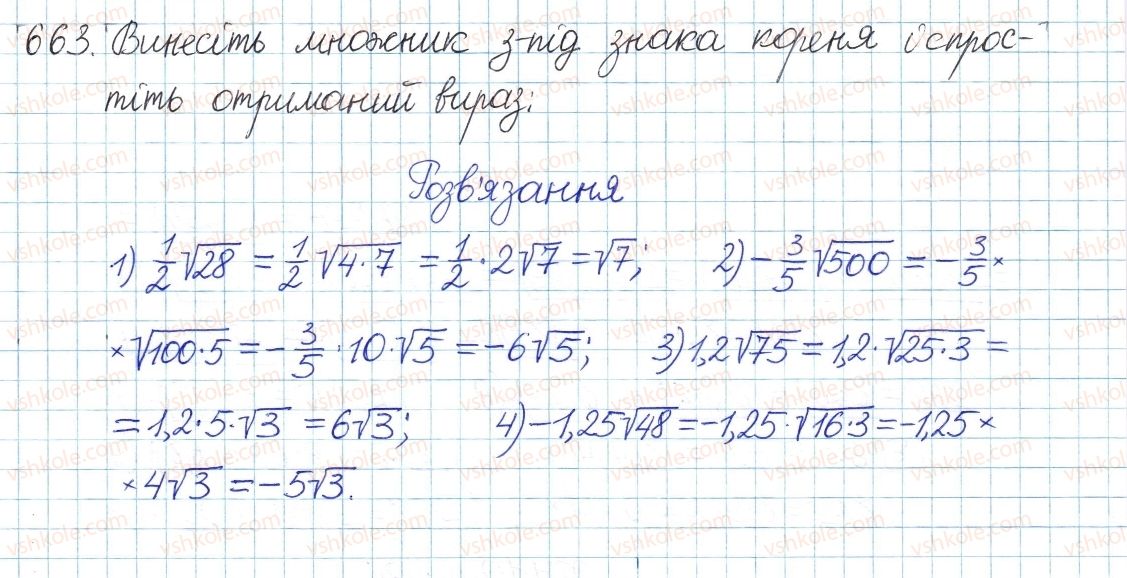 663. Винесіть множник з-під знака кореня і спрос-
тіть отриманий вираз:
Розв'язання
1) 1/2 √28 = 1/2 √4·7 = 1/2 · 2√7 = √7; 2) -3/5 √500 = -3/5 ×
× √100·5 = -3/5 · 10 · √5 = -6√5; 3) 1,2√75 = 1,2 · √25·3 =
= 1,2 · 5 · √3 = 6√3; 4) -1,25√48 = -1,25 · √16·3 = -1,25 ×
× 4√3 = -5√3.